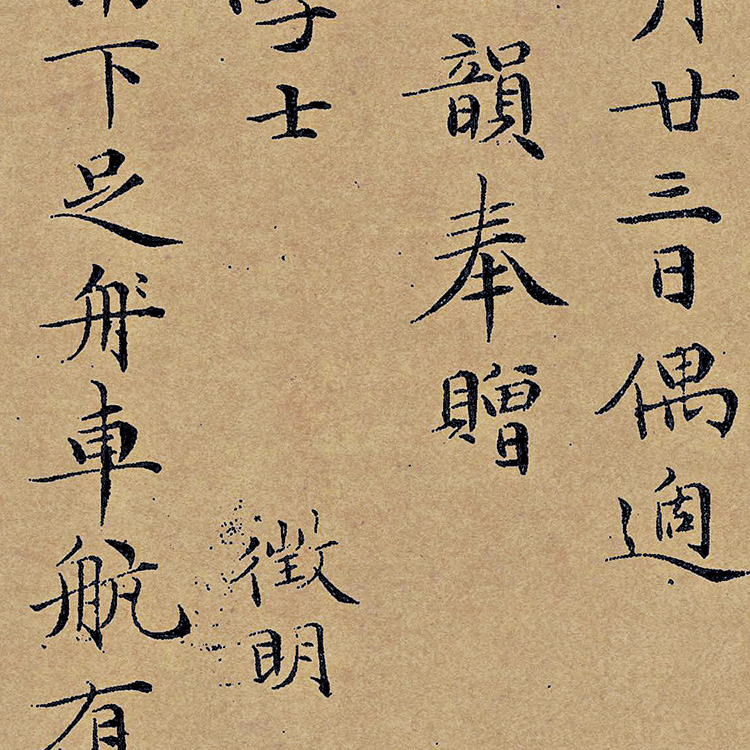 月廿三日偶適
韻奉贈
學士 徵明
下足舟車航有